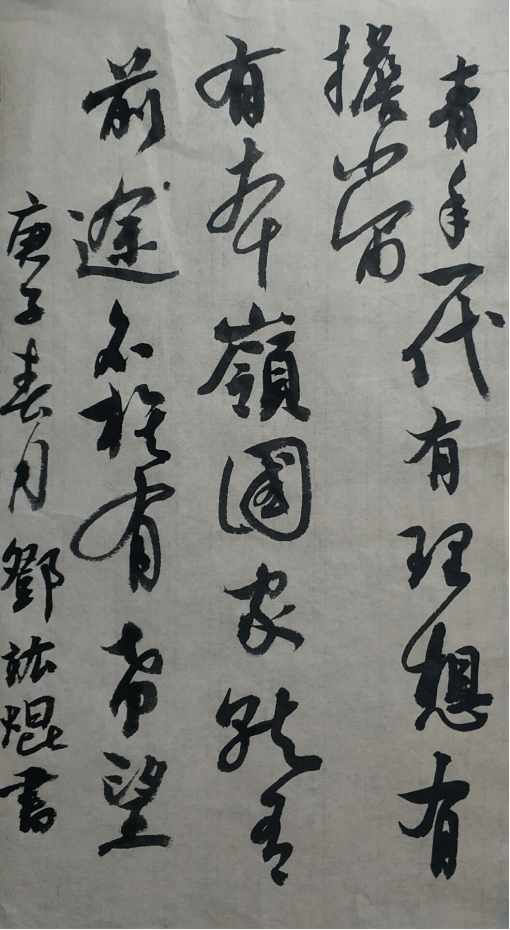 青年一代有理想有
擔當
有本嶺國家就有
前途民族有希望
庚子春月鄧竑焜書